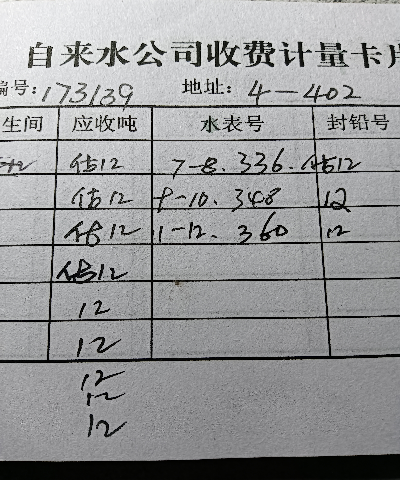 自来水公司收费计量卡片
编号:173139 地址:4-402
生间 应收吨 水表号 封铅号
估12 7-8.336. 估12
估12 9-10.348 12
估12 11-12.360 12
估12
12
12
12
12
12